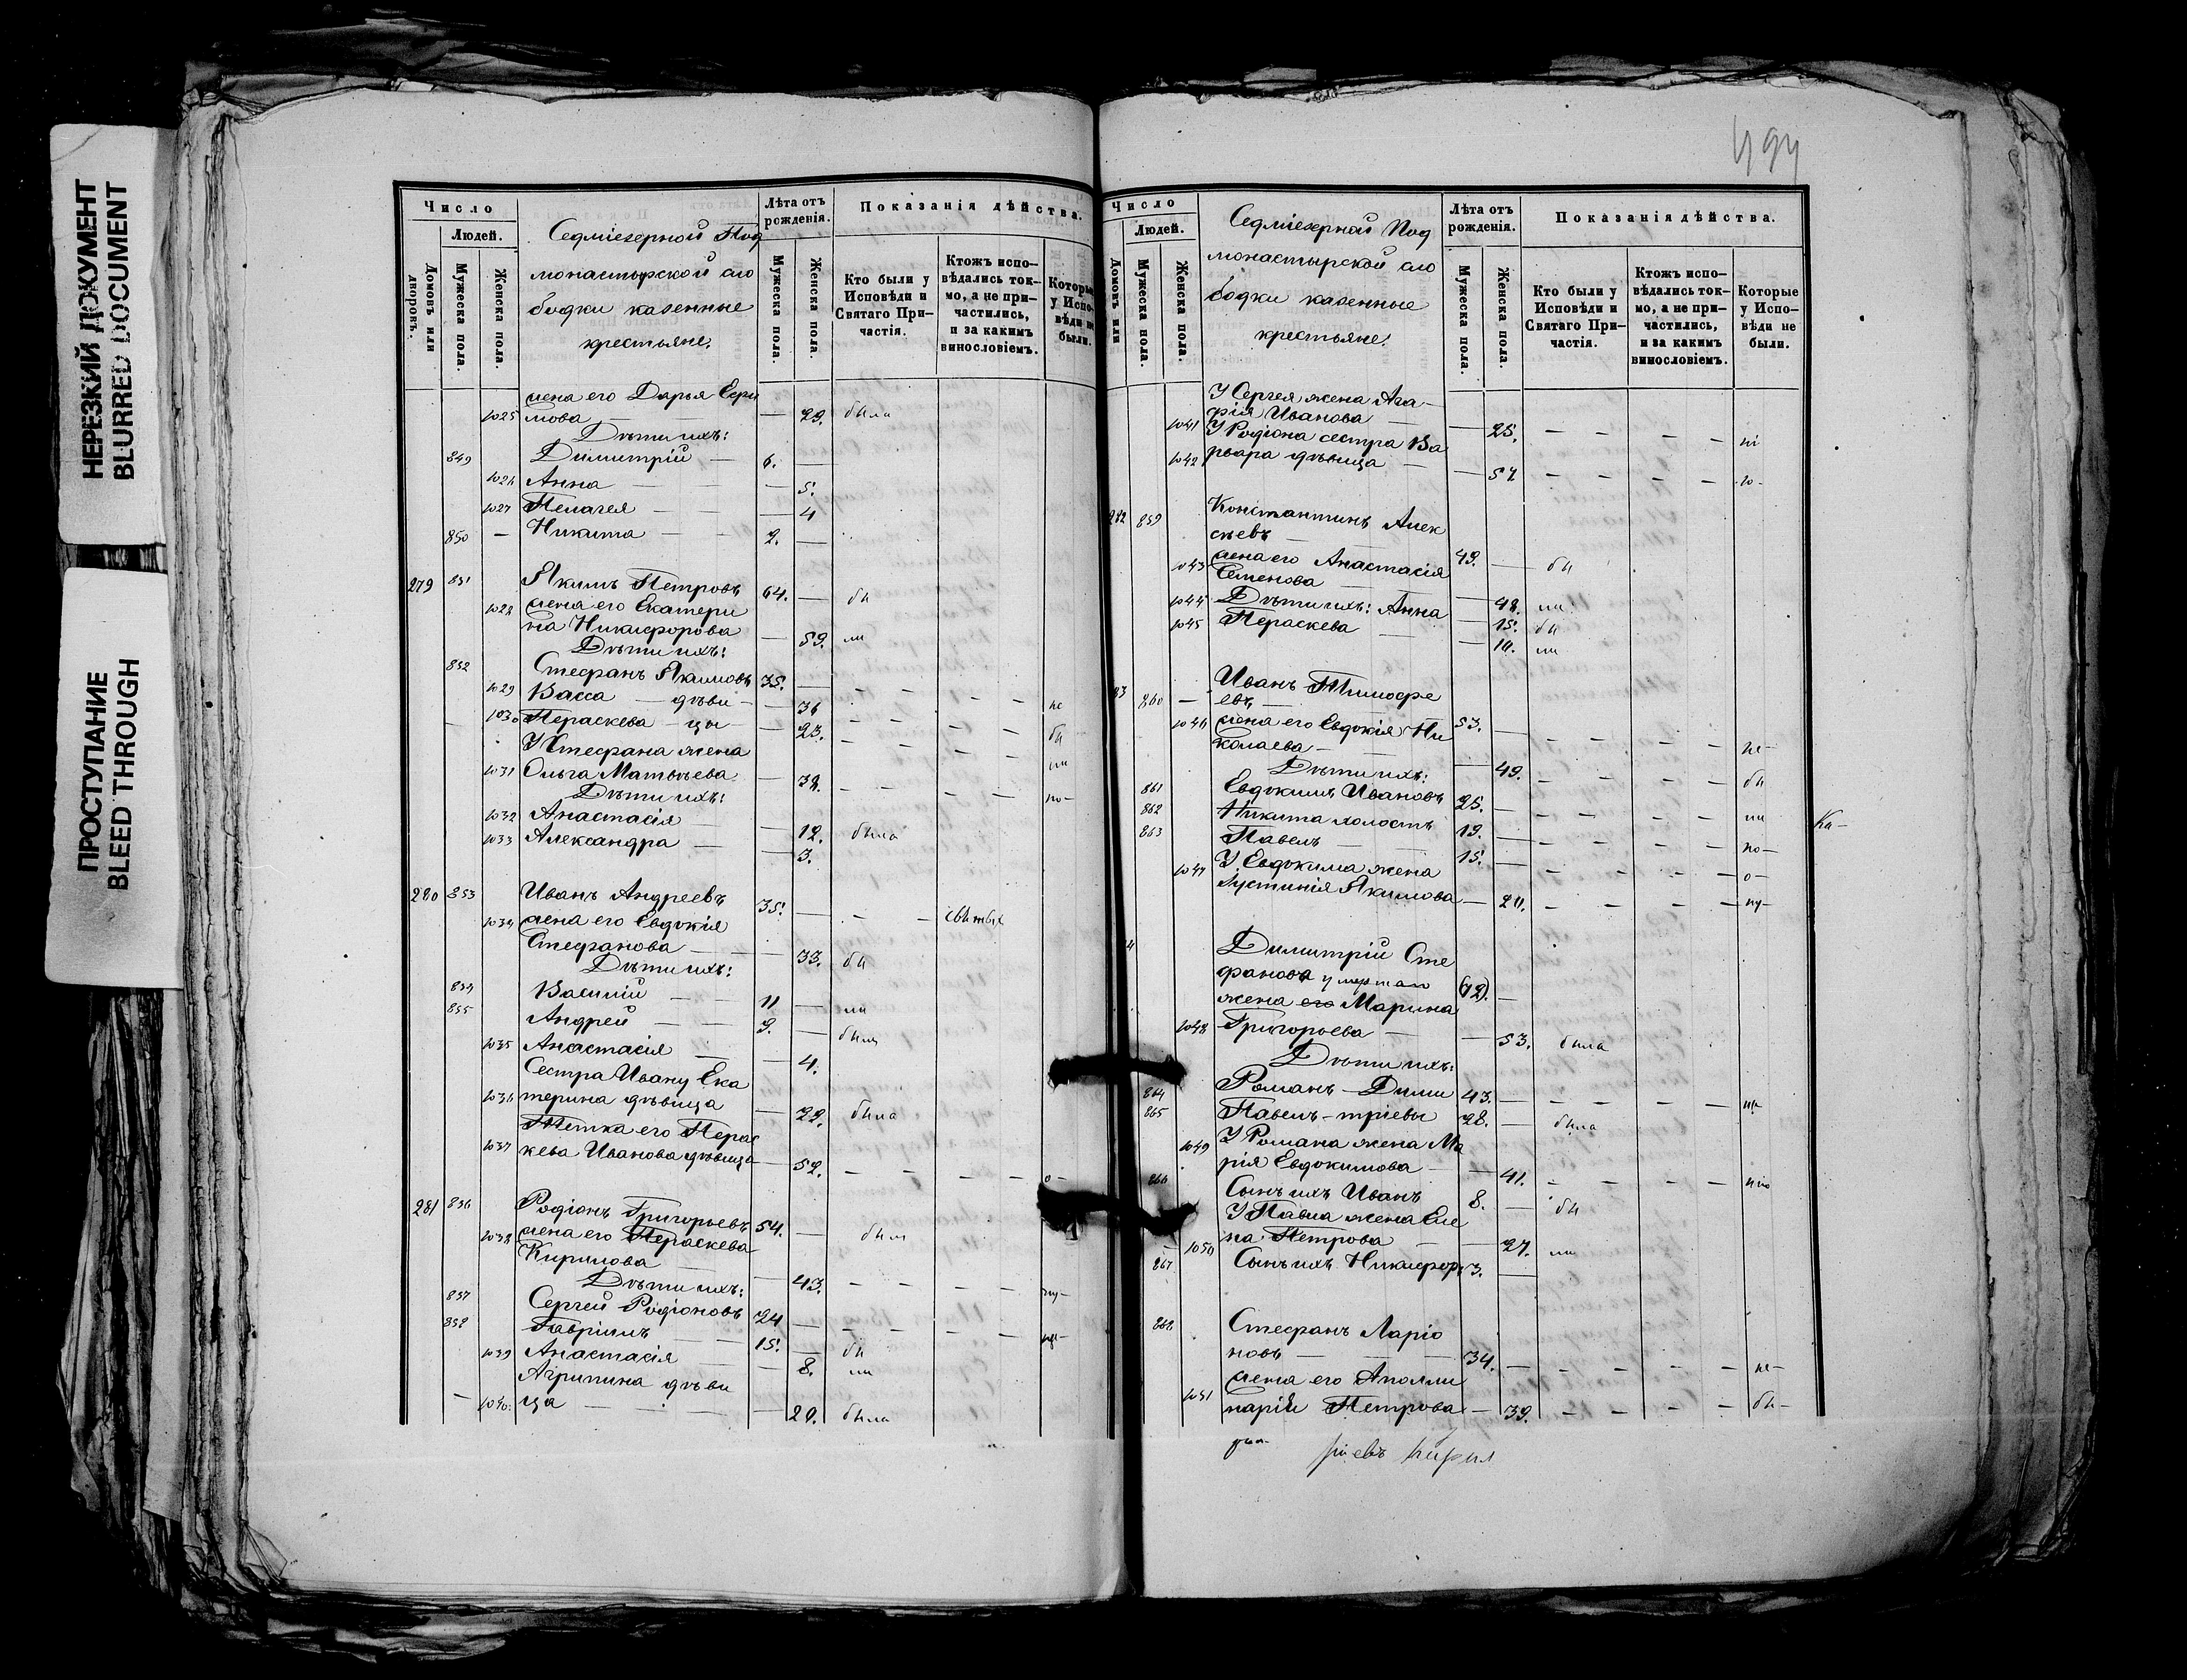 НЕРЕЗКИЙ ДОКУМЕНТ
BLURRED DOCUMENT
ПРОСТУПАНИЕ
BLEED THROUGH
Число
Людей.
Домовъ или дворовъ.
Мужеска пола.
Женска пола.
Седміезерной Под
монастырской сло
бодки казенные
крестьяне.
Лѣта отъ рожденія.
Мужеска пола.
Женска пола.
Показанія дѣйства.
Кто были у Исповѣди и Святаго Причастія.
Ктожъ исповѣдались токмо, а не причастились, и за какимъ винословіемъ.
Которые у Исповѣди не были.
жена его Дарья Ефи
1025 мова — 29. была
Дѣти ихъ:
849 Димитрій — 6. —
1026 Анна — — 5.
1027 Пелагея — — 4
850 — Никита — 2. —
279 851 Якимъ Петровъ 64. — бы
1028 жена его Екатери
на Никифорова — 59. ли
Дѣти ихъ:
852 Стефанъ Якимовъ 35. — — — — — не
1029 Васса — дѣви — — 36 — — — — бы
1030 Пераскева — цы — 23. — — — — ли
У Стефана жена
1031 Ольга Матвѣева — 32. — — — — по—
Дѣти ихъ:
1032 Анастасія — — 12. была
1033 Александра — — 3.
280 853 Иванъ Андреевъ 35. — — —
1034 жена его Евдокія
Стефанова — — 33. бы
Дѣти ихъ:
854 Василій — 11 — ли
855 Андрей — 9. — были
1035 Анастасія — — 4.
Сестра Ивану Ека
1036 терина дѣвица — 22. была
Тетка его Перас
1037 кева Иванова дѣвица — 52. — — — — о—
281 856 Родіонъ Григорьевъ 54. — был
1038 жена его Пераскева
Кирилова — 43. — — — —
Дѣти ихъ:
857 Сергей Родіоновъ 24 — — — — —
858 Гавріилъ — 15. — бы
1039 Анастасія — — 8. ли
Агрипина дѣви
1040. ца — — — 20. была
494
Число
Людей.
Домовъ или
Мужеска пола.
Женска пола.
Седміезерной Под
монастырской сло
бодки казенные
крестьяне.
Лѣта отъ рожденія.
Мужеска пола.
Женска пола.
Показанія дѣйства.
Кто были у Исповѣди и Святаго Причастія.
Ктожъ исповѣдались токмо, а не причастились, и за какимъ винословіемъ.
Которые у Исповѣди не были.
У Сергея жена Ага
1041 фія Иванова — — 25. — — — —
У Родіона сестра Ва
1042 рвара дѣвица — — 57 — — — —
282 859 Константинъ Алек
сѣевъ — 49. — бы
1043 жена его Анастасія
Семенова — — 48. ли
1044 Дѣти ихъ: Анна — 15. бы
1045 Пераскева — — 10. ли
83 860 — Иванъ Тимофе
евъ — 53. — — — — — не—
1046 жена его Евдокія Ни
колаева — — 49. — — — — бы
Дѣти ихъ:
861 Евдокимъ Ивановъ 25. — — — — — ли
862 Никита холостъ 19. — — — — — по—
863 Павелъ — 15. — — — — — о—
1047 У Евдокима жена
Іустинія Якимова — 20. — — — —
Ка—
4 Димитрій Сте
фановъ умерш (72). —
жена его Марина
1048 Григорьева — — 53. была
Дѣти ихъ:
864 Романъ — Дими 43. — — — — —
865 Павелъ — тріевы 28. — была
1049 У Романа жена Ма
рія Евдокимова — — 41. — — — —
866 Сынъ ихъ Иванъ 8. — бы
У Павла жена Еле
1050 на Петрова — — 27. ли
867 Сынъ ихъ Никифоръ 3. —
868 Стефанъ Ларіо
новъ — — 34. — — — — — не—
жена его Аполли
1051 нарія Петрова — 39. — — — — бы—